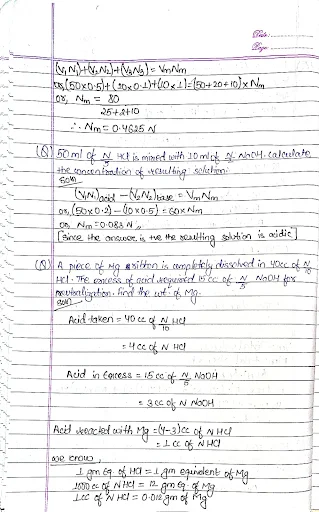 Date:
Page
(V₁N₁)+(V₂N₂)+(V₃N₃) = VmNm
or, (50x0.5)+(20x0.1)+(10x1)=(50+20+10)xNm
or, Nm = 80
25+2+10
∴ Nm = 0.4625 N
(Q) 50 ml of N/5 HCl is mixed with 10 ml of N/2 NaOH. calculate
the concentration of resulting solution.
Soln
(V₁N₁)acid - (V₂N₂)base = VmNm
or, (50x0.2) - (10x0.5) = 60xNm
or, Nm = 0.083 N
[since the answer is +ve the resulting solution is acidic]
(Q) A piece of Mg ribbon is completely dissolved in 40cc of N/10
HCl. The excess of acid required 15 cc of N/5 NaOH for
neutralization. find the wt. of Mg.
Soln
Acid taken = 40 cc of N/10 HCl
= 4 cc of N HCl
Acid in Excess = 15 cc of N/5 NaOH
= 3 cc of N NaOH
Acid reacted with Mg = (4-3) cc of N HCl
= 1 cc of N HCl
we know,
1 gm Eq. of HCl = 1 gm equivalent of Mg
1000 cc of N HCl = 12 gm Eq. of Mg
1 cc of N HCl = 0.012 gm of Mg